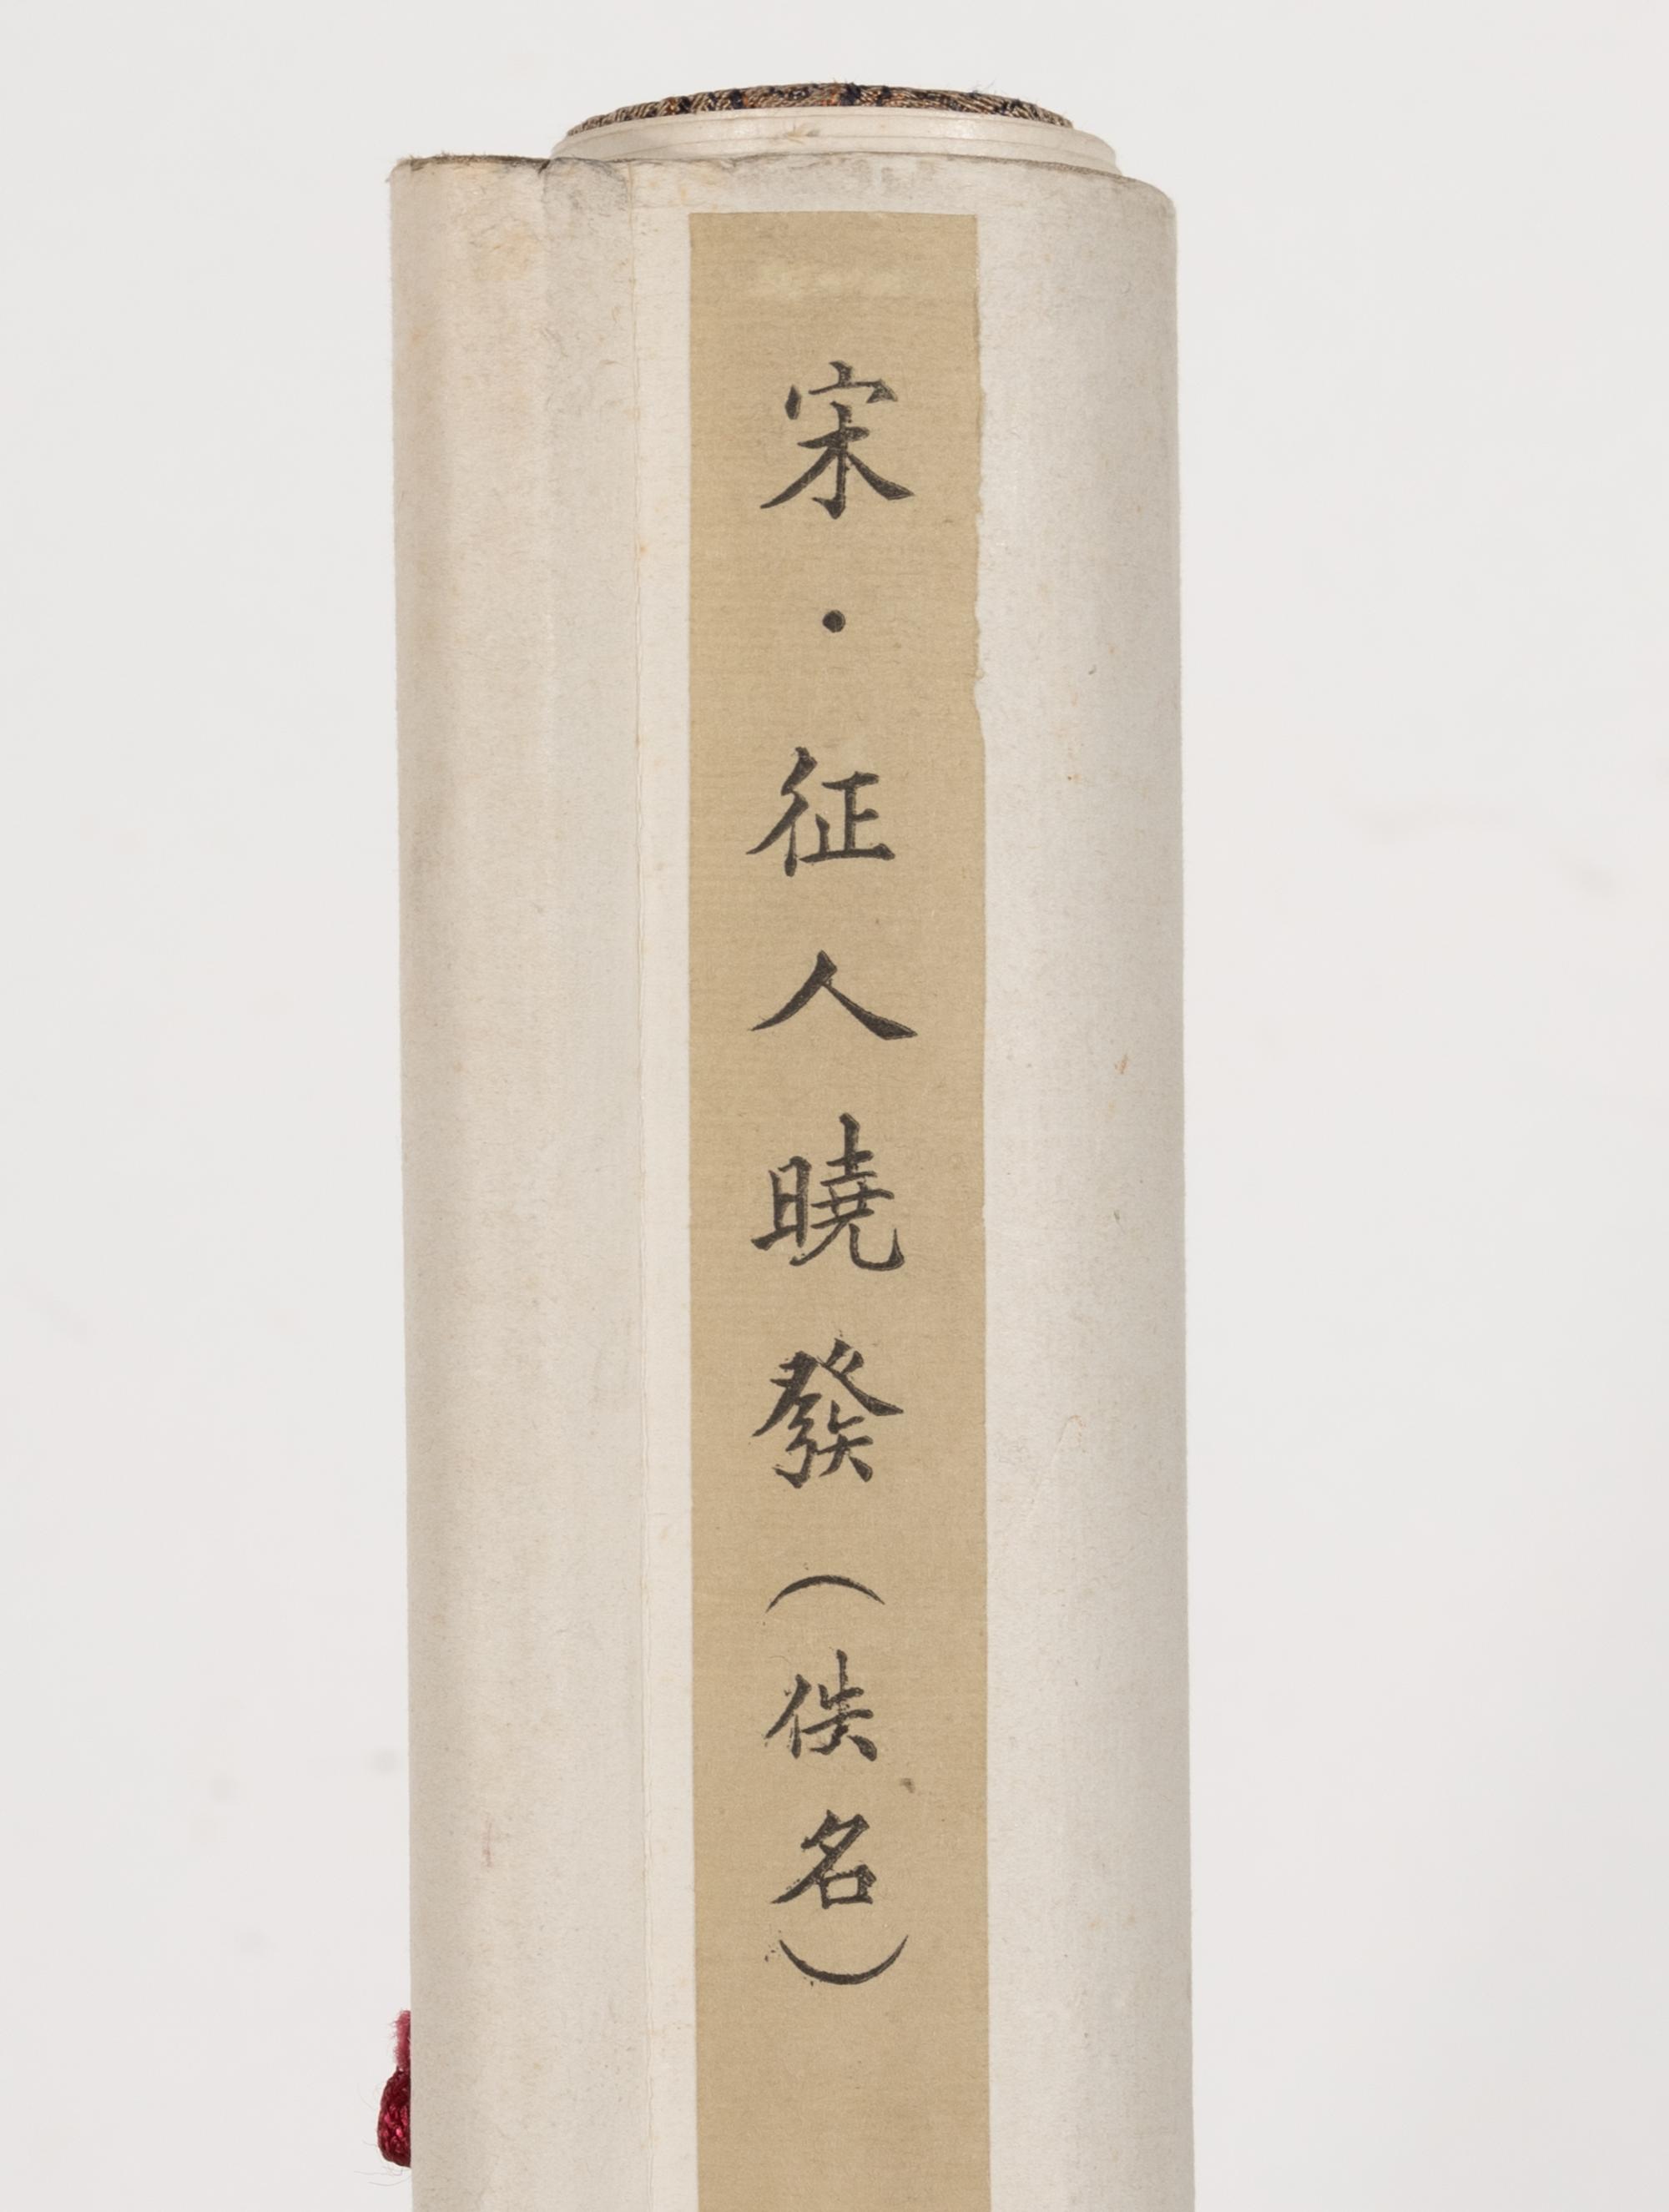 宋・征人曉發(佚名)